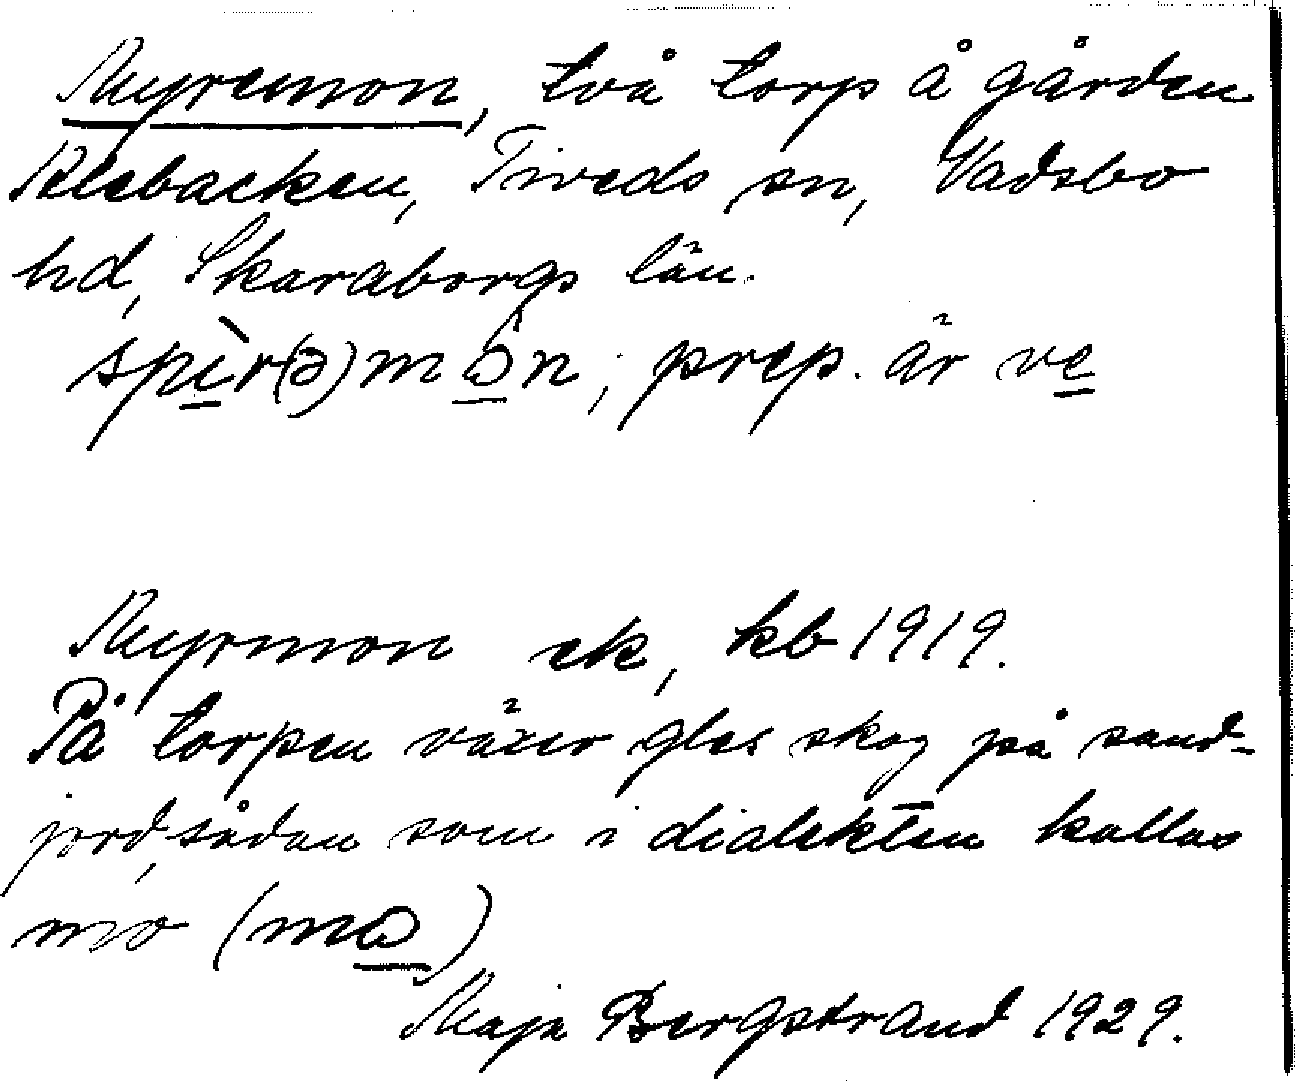 Myremon, två torp å gården
Tiveds sn, Vadsbo
hd, Skaraborgs län.
spìr(ə)mɔ̂n; prep. är ve
Myrmon ek, kb 1919.
På torpen växer gles skog på sand-
jord, sådan som i dialekten kallas
mo (mɷ)
Maja Bergstrand 1929.